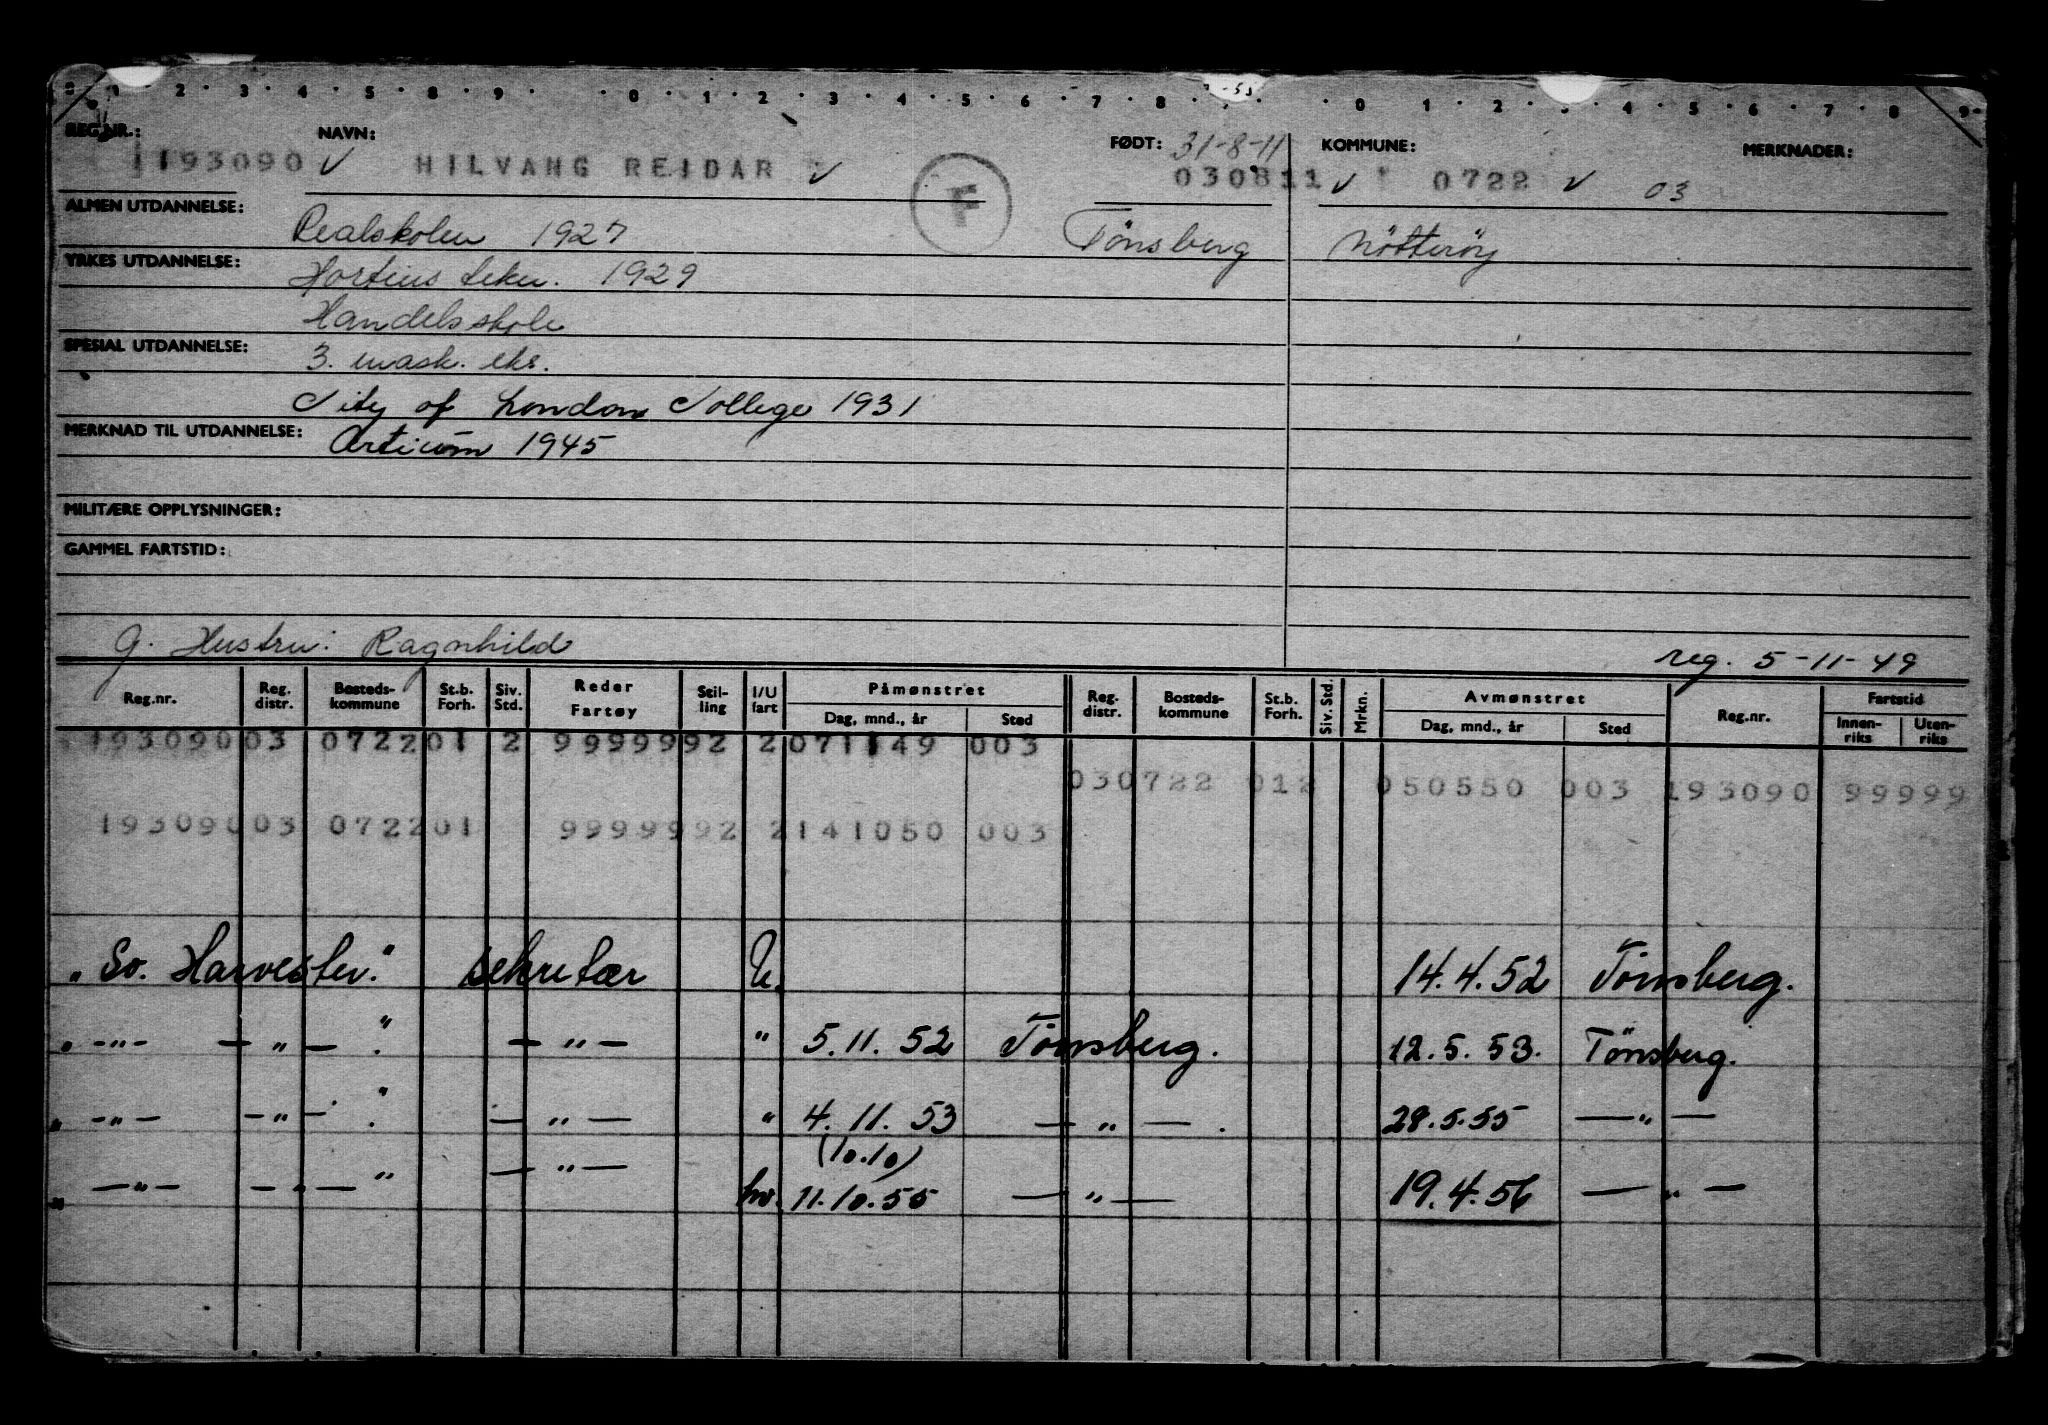 1 2 3 4 5 8 9 0 1 2 3 4 5 6 7 8 0 1 2 3 4 5 6 7 8 9
REG.NR.: NAVN: FØDT: 31-8-11 KOMMUNE: MERKNADER:
1193090 ✓ HILVANG REIDAR ✓ F 030811 ✓ 0722 ✓ 03
ALMEN UTDANNELSE: Realskolen 1927 Tönsberg Nötteröy
YRKES UTDANNELSE: Hortens tekn. 1929
Handelsskole
SPESIAL UTDANNELSE: 3. mask. eks.
City of London College 1931
MERKNAD TIL UTDANNELSE: Artium 1945
MILITÆRE OPPLYSNINGER:
GAMMEL FARTSTID:
G. Hustru: Ragnhild reg. 5-11-49
Reg.nr. Reg. distr. Bosteds-kommune St.b. Forh. Siv. Std. Reder Fartøy Stil-ling I/U fart Påmønstret Dag, mnd., år Sted Reg. distr. Bosteds-kommune St.b. Forh. Siv. Std. Mrkn. Avmønstret Dag, mnd., år Sted Reg.nr. Fartstid Innen-riks Uten-riks
193090 03 0722 01 2 99999 92 2 071149 003
03 0722 01 2 050550 003 193090 99999
193090 03 0722 01 99999 92 2 141050 003
"Sv. Harvester." sekretær U. 14.4.52 Tönsberg.
" -"- - " - ". - " - " 5.11.52 Tönsberg. 12.5.53. Tönsberg.
" -"- - " - ". - " - " 4.11.53 - " - . 28.5.55 - " -
(10.10)
" -"- - " - " - " - hv. 11.10.55 - " - 19.4.56 - " -